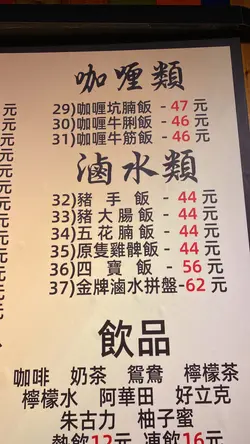 咖喱類
29)咖喱坑腩飯 - 47 元
30)咖喱牛脷飯 - 46 元
31)咖喱牛筋飯 - 46 元
滷水類
32)豬手飯 - 44 元
33)豬大腸飯 - 44 元
34)五花腩飯 - 44 元
35)原隻雞髀飯 - 44 元
36)四寶飯 - 56 元
37)金牌滷水拼盤-62 元
飲品
咖啡 奶茶 鴛鴦 檸檬茶
檸檬水 阿華田 好立克
朱古力 柚子蜜
熱飲12元 凍飲16元